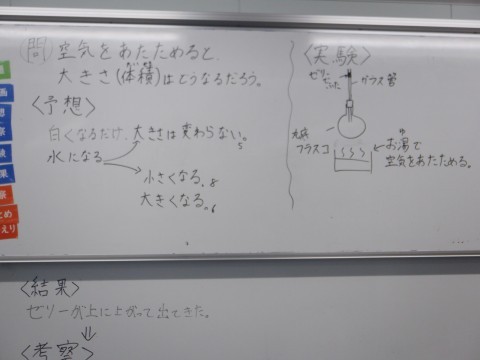 問 空気をあたためると、
大きさ(体積)はどうなるだろう。
たいせき
〈予想〉
白くなるだけ、大きさは変わらない。5
水になる
小さくなる。8
大きくなる。6
〈実験〉
ゼリー
ガラス管
丸底
フラスコ
お湯で
ゆ
空気をあたためる。
〈結果〉
ゼリーが上に上がって出てきた。
〈考察〉
画
想
験
果
察
とめ
えり